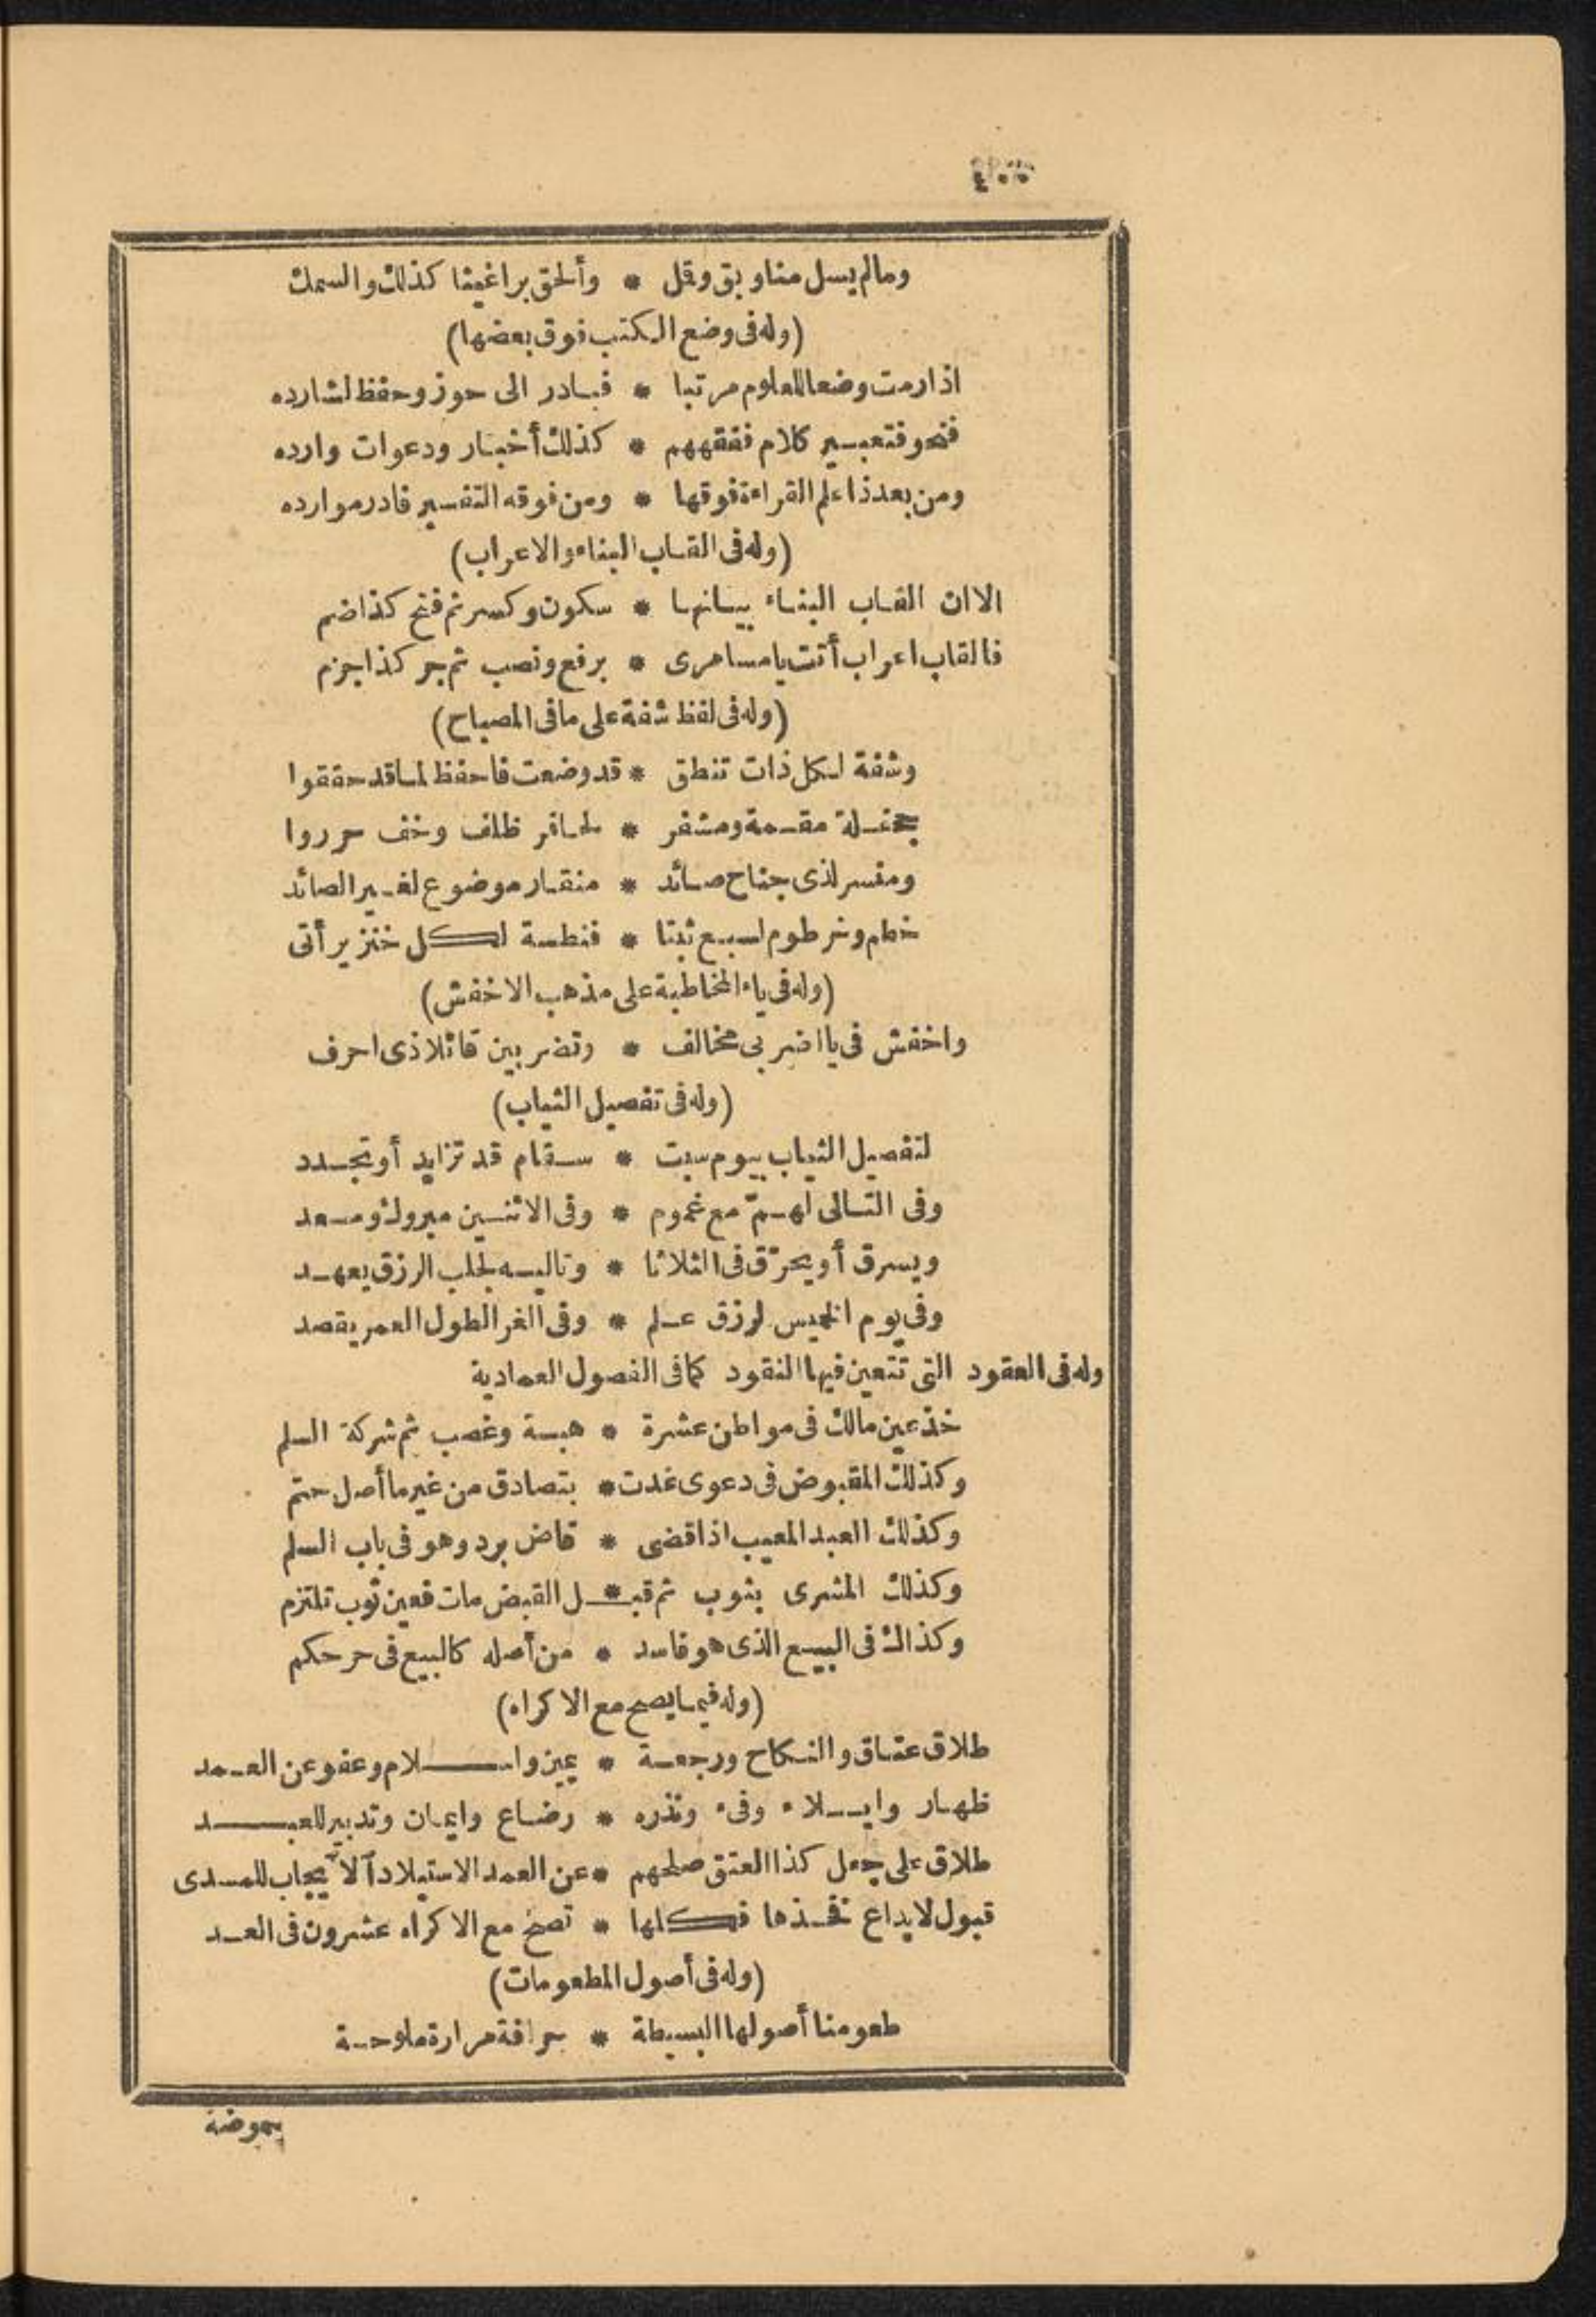 ومالم يسل منا وبق وقل * وألحق براغيثا كذلك والسمك
(وله فى وضع الكتب فوق بعضها)
اذا رمت وضعا للعلوم مرتبا * فبادر الى حوز وحفظ لشارده
فنحو فتعبير كلام ففقههم * كذلك أخبار ودعوات وارده
ومن بعد ذا علم القراءة فوقها * ومن فوقه التفسير فادر موارده
(وله فى القاب البناء والاعراب)
الا ان القاب البناء بيانها * سكون وكسر ثم فتح كذا ضم
فالقاب اعراب أتت يا مسامرى * برفع ونصب ثم جر كذا جزم
(وله فى لفظ شفة على ما فى المصباح)
وشفة لكل ذات تنطق * قد وضعت فاحفظ لما قد حققوا
جحفلة مقمة ومشفر * لحافر ظلف وخف حرروا
ومنسر لذى جناح صائد * منقار موضوع لغير الصائد
خطم وخرطوم لسبع ثبتا * فنطسة لكل خنزير أتى
(وله فى ياء المخاطبة على مذهب الاخفش)
واخفش فى يا اضربى مخالف * وتضربين قائلا ذى احرف
(وله فى تفصيل الثياب)
لتفصيل الثياب بيوم سبت * سقام قد تزايد أو تجدد
وفى التالى لهمّ مع غموم * وفى الاثنين مبروك ومسعد
ويسرق أو يحرّق فى الثلاثا * وتاليه لجلب الرزق يعهد
وفى يوم الخميس لرزق علم * وفى الغرا لطول العمر يقصد
وله فى العقود التى تتعين فيها النقود كما فى الفصول العمادية
خذ عين مالك فى مواطن عشرة * هبة وغصب ثم شركة السلم
وكذلك المقبوض فى دعوى غدت * بتصادق من غير ما أصل حتم
وكذلك العبد المعيب اذا قضى * قاض برد وهو فى باب السلم
وكذلك المشرى بثوب ثم قبـ * ـل القبض مات فعين ثوب تلتزم
وكذاك فى البيع الذى هو فاسد * من أصله كالبيع فى حر حكم
(وله فيما يصح مع الاكراه)
طلاق عتاق والنكاح ورجعة * يمين واسلام وعفو عن العمد
ظهار وايلاء وفىء ونذره * رضاع وايمان وتدبير للعبد
طلاق على جعل كذا العتق صلحهم * عن العمد الاستيلاد آلايجاب للمسدى
قبول لايداع فخذها فكلها * تصح مع الاكراه عشرون فى العد
(وله فى أصول المطعومات)
طعومنا أصولها البسيطة * حرافة مرارة ملوحة